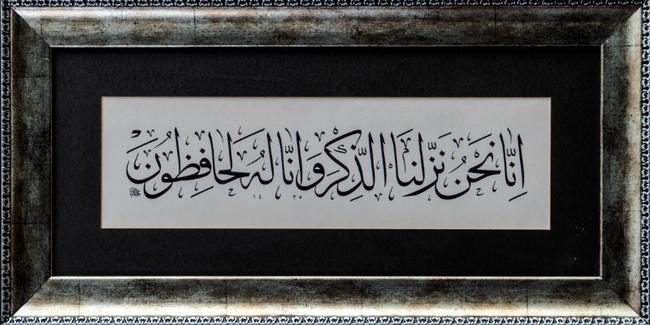 اِنَّا نَحْنُ نَزَّلْنَا الذِّكْرَ وَاِنَّا لَهُ لَحَافِظُونَ